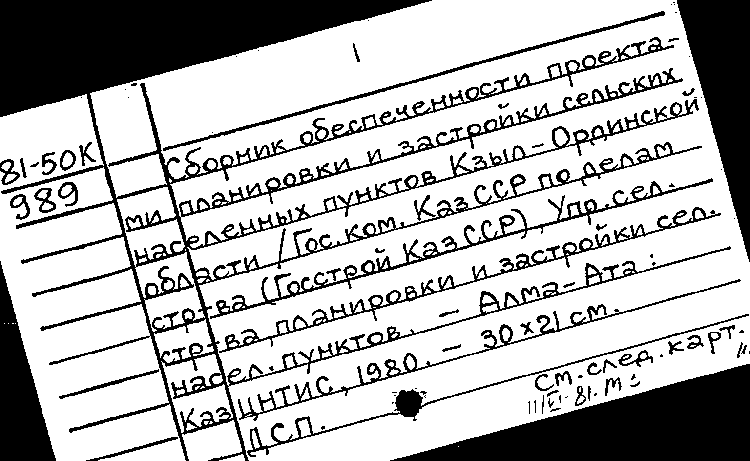 1
81-50К
989
Сборник обеспеченности проекта-
ми планировки и застройки сельских
населенных пунктов Кзыл-Ординской
области / Гос. ком. КазССР по делам
стр-ва (Госстрой КазССР), Упр. сел.
стр-ва, планировки и застройки сел.
насел. пунктов. - Алма-Ата:
КазЦНТИС, 1980. - 30×21 см.
ДСП.
см. след. карт.